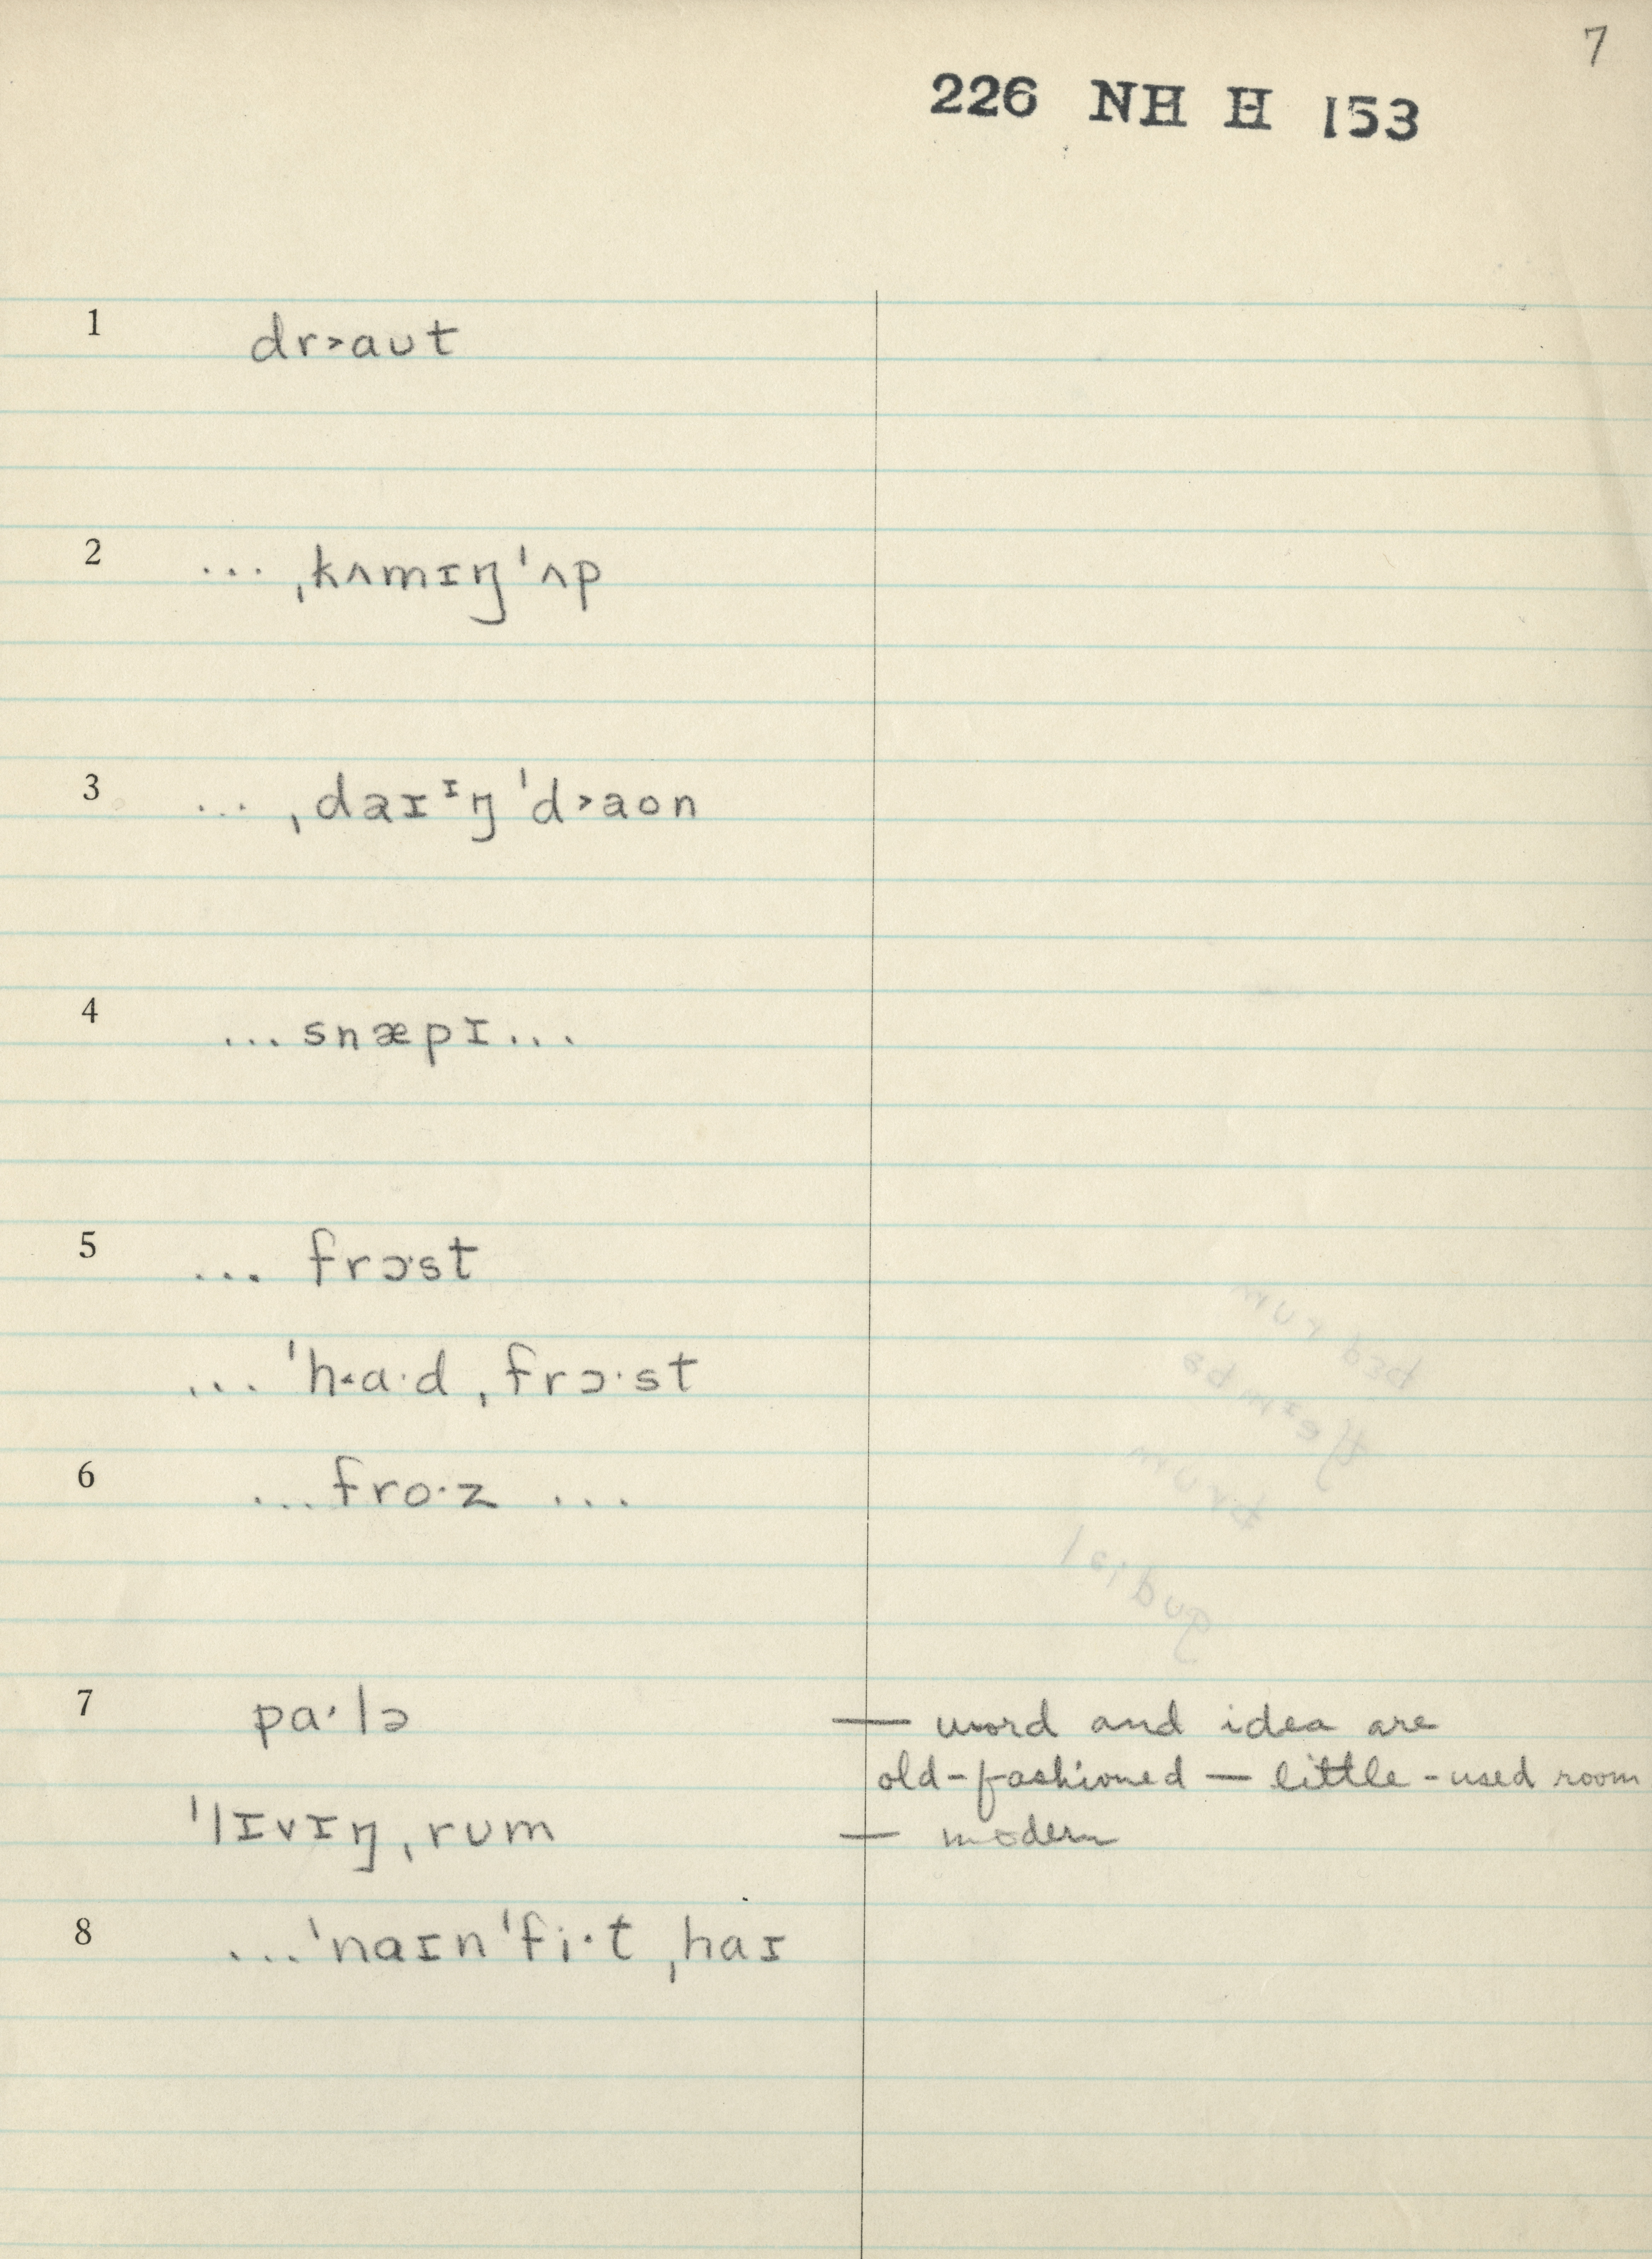 7
226 NH H 153
1 dr˃aut
2 ... ˌkʌmɪŋ ˈʌp
3 ... ˌdaɪᶦŋ ˈd˃aon
4 ... snæpɪ ...
5 ... frɔ·st
... ˈh˂a·d ˌfrɔ·st
6 ... fro·z ...
7 pa·lə — word and idea are
old-fashioned — little-used room
ˈlɪvɪŋ ˌrʊm — modern
8 ... ˈnaɪn ˈfi·t ˌhaɪ